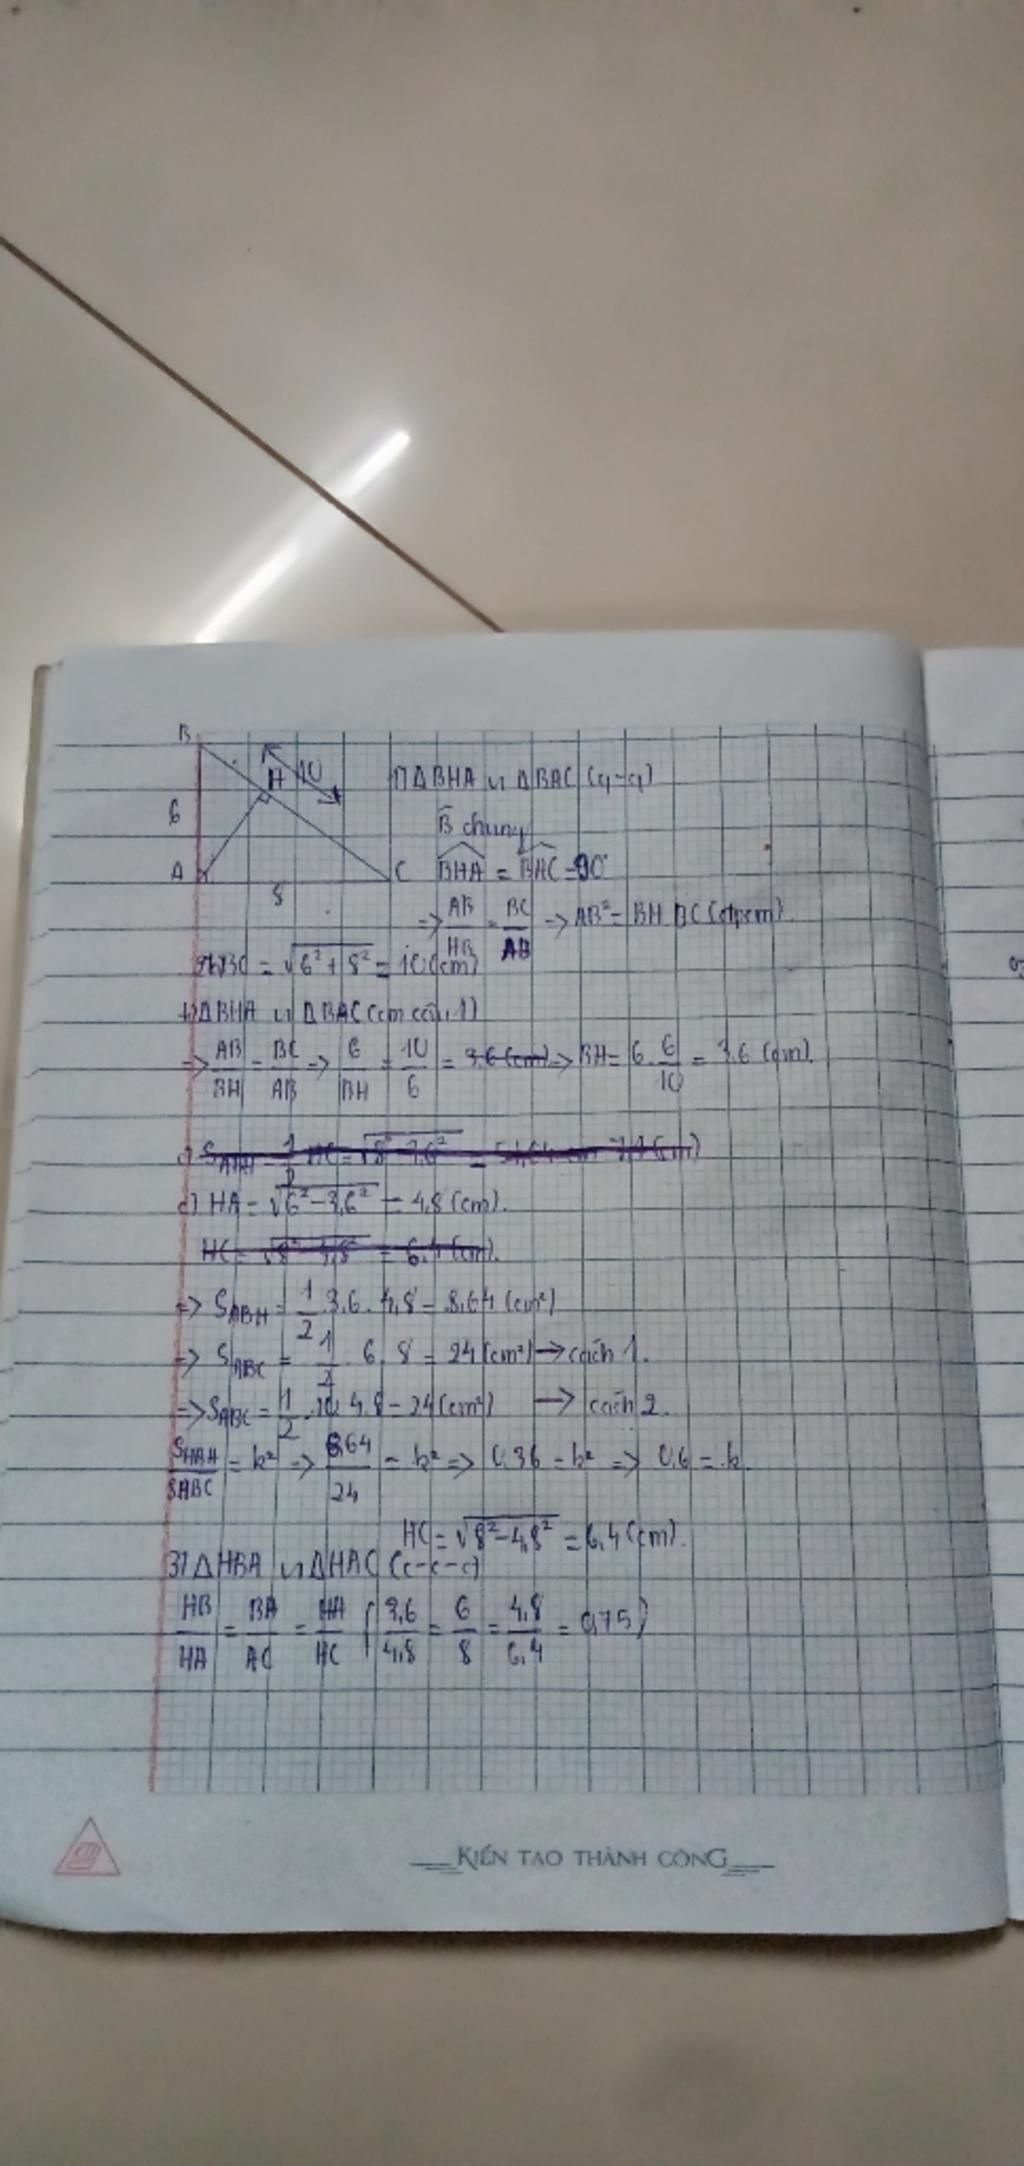 B
H 10
6
A
8
C
1) ΔBHA ᔕ ΔBAC (g-g)
B̂ chung
BHA = BAC = 90°
=> AB/HB = BC/AB => AB² = BH.BC (đpcm)
BC = √(6² + 8²) = 10 (cm)
+) ΔBHA ᔕ ΔBAC (cm câu 1)
=> AB/BH = BC/AB => 6/BH = 10/6 = 3,6 (cm) => BH = 6.6/10 = 3,6 (cm).
c) HA = √(6² - 3,6²) = 4,8 (cm).
HC = √(8² - 4,8²) = 6,4 (cm).
=> S ABH = 1/2 . 3,6 . 4,8 = 8,64 (cm²)
=> S ABC = 1/2 . 6 . 8 = 24 (cm²) → cách 1.
=> S ABC = 1/2 . 10 . 4,8 = 24 (cm²) → cách 2.
S HBA/S ABC = k² => 8,64/24 = k² => 0,36 = k² => 0,6 = k
HC = √(8² - 4,8²) = 6,4 (cm).
3) ΔHBA ᔕ ΔHAC (c-c-c)
HB/HA = BA/AC = HA/HC (3,6/4,8 = 6/8 = 4,8/6,4 = 0,75)
KIẾN TẠO THÀNH CÔNG